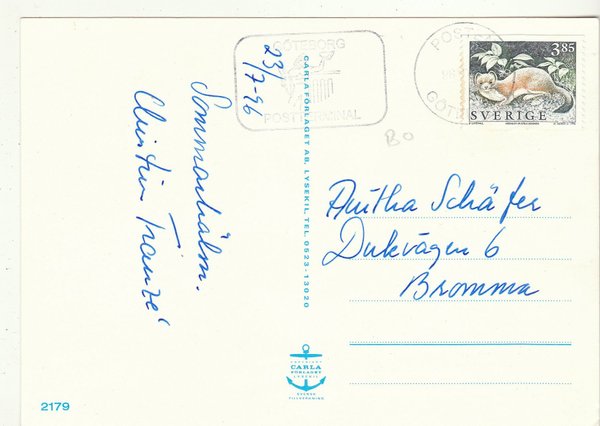 23/7-96
Sommarhälsn.
Christin Franzé
GÖTEBORG
POSTTERMINAL
POST
GÖT
3.85
SVERIGE
80
Schäfer
Dukvägen 6
Bromma
CARLAFÖRLAGET AB, LYSEKIL, TEL. 0523-13020
COPYRIGHT
CARLA
FÖRLAGET
LYSEKIL
SVENSK
TILLVERKNING
2179